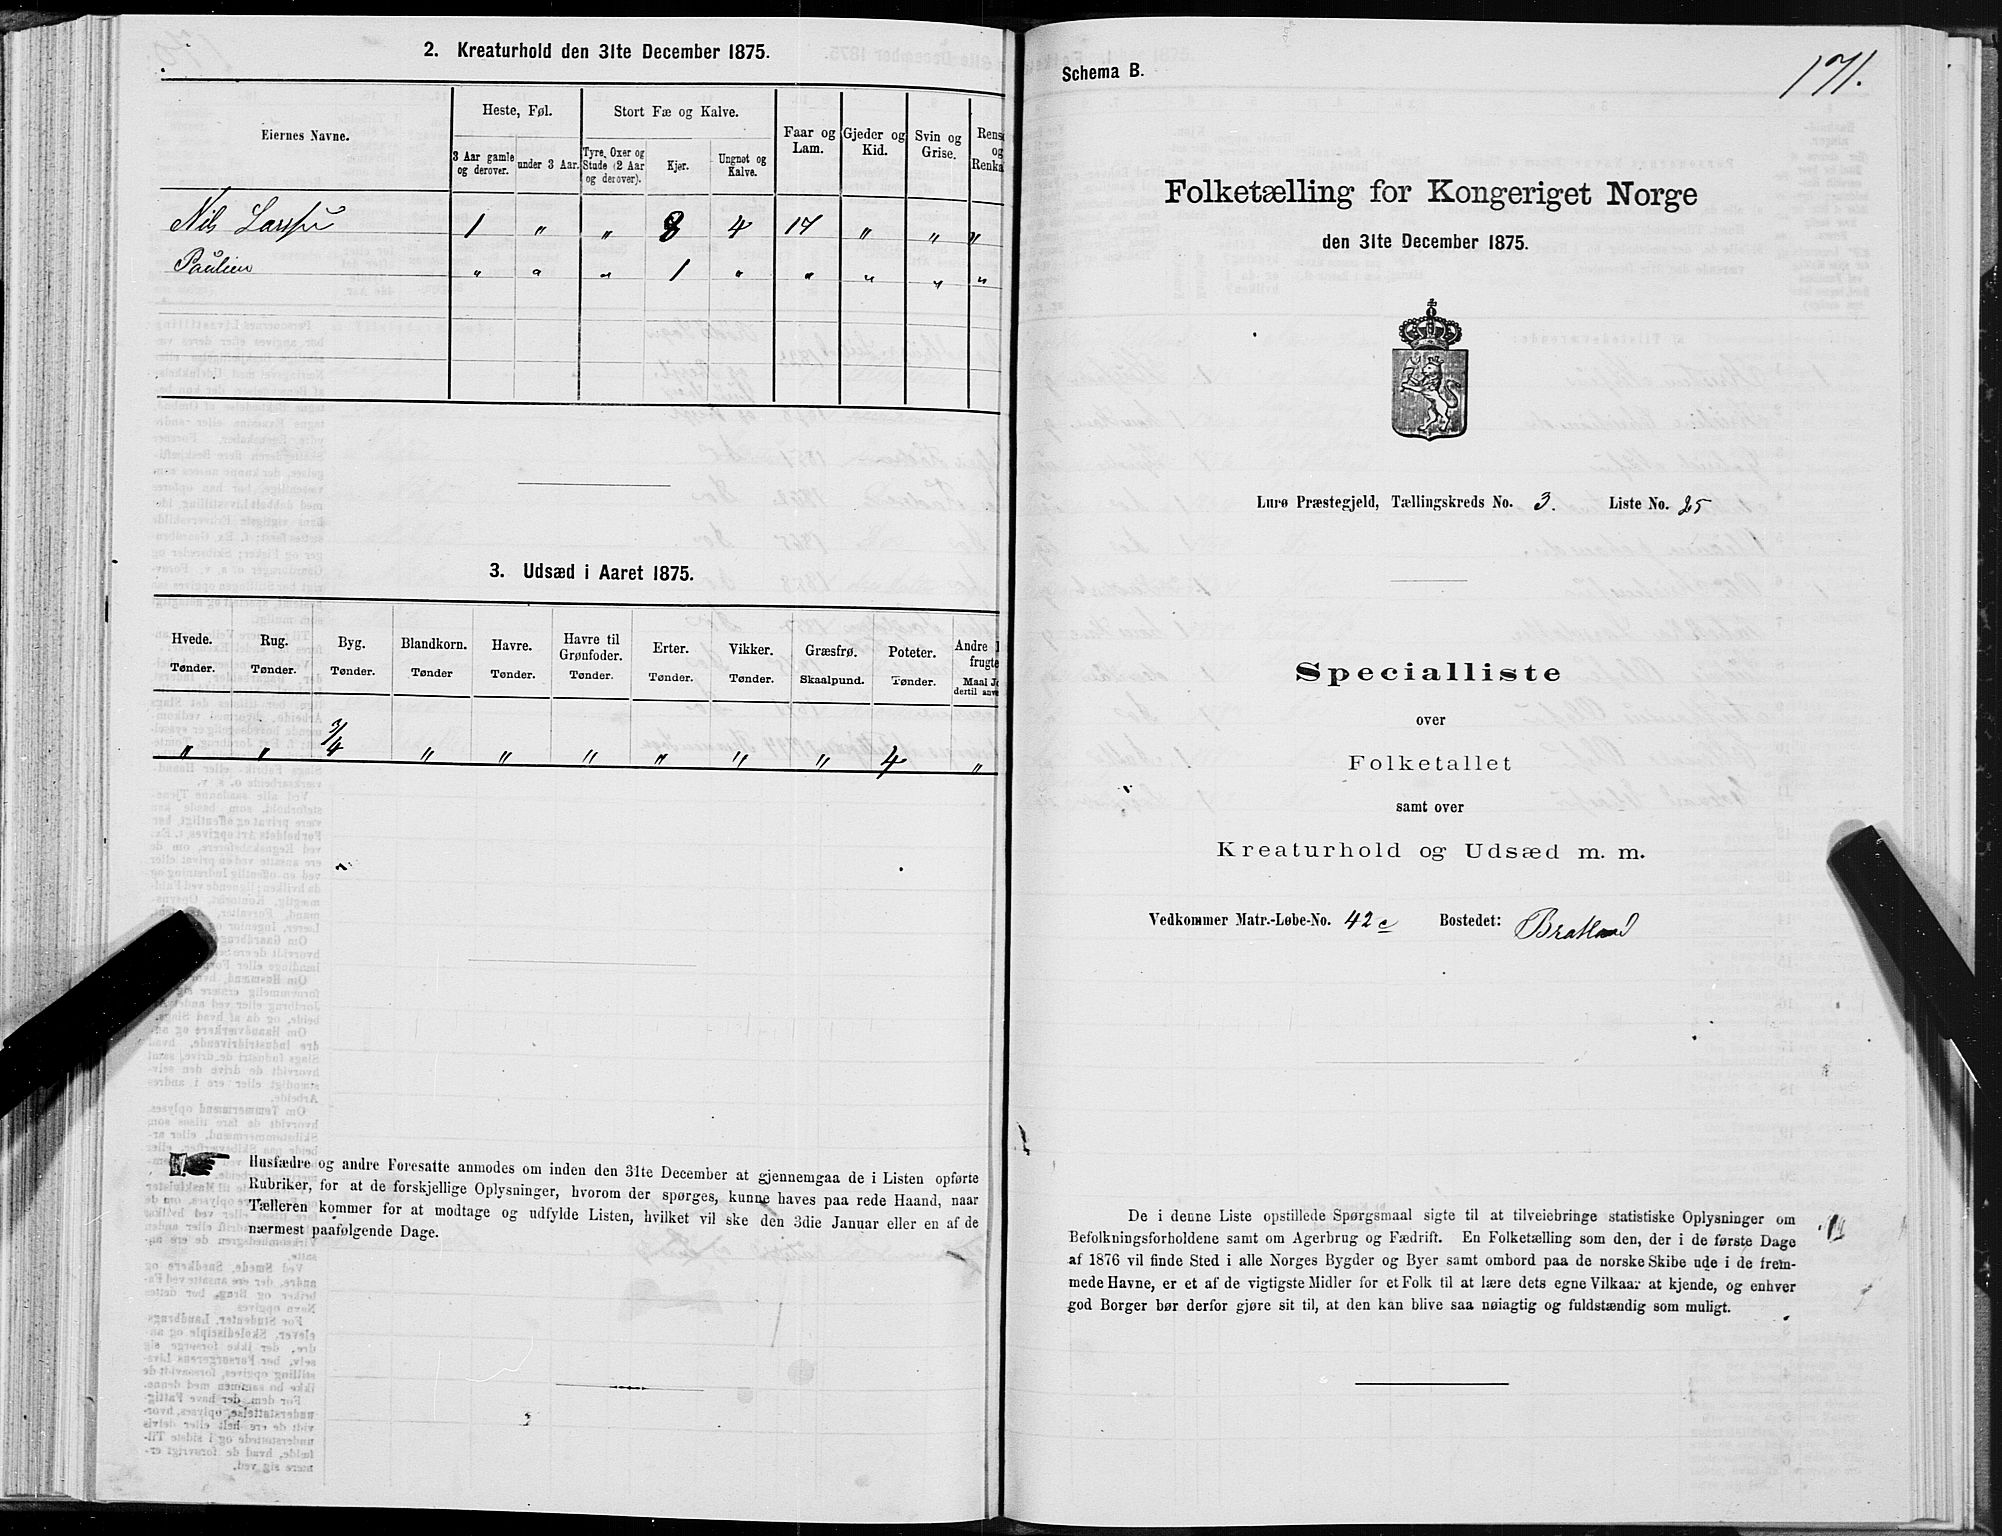 2. Kreaturhold den 31te December 1875.
Eiernes Navne.
Heste, Føl.
Stort Fæ og Kalve.
Faar og Lam.
Gjeder og Kid.
Svin og Grise.
Rens
og
Renka
3 Aar gamle og derover.
under 3 Aar.
Tyre, Oxer og Stude (2 Aar og derover).
Kjør.
Ungnøt og Kalve.
Nils Larssen 1 " " 8 4 17 " " "
Paulien " " " 1 " " " " "
3. Udsæd i Aaret 1875.
Hvede. Rug. Byg. Blandkorn. Havre. Havre til Grønfoder. Erter. Vikker. Græsfrø. Poteter. Andre
frugte
Tønder. Tønder. Tønder. Tønder Tønder. Tønder. Tønder. Tønder. Skaalpund. Tønder. Maal J
dertil anv
" " 3/4 " " " " " " 4 "
Husfædre og andre Foresatte anmodes om inden den 31te December at gjennemgaa de i Listen opførte
Rubriker, for at de forskjellige Oplysninger, hvorom der spørges, kunne haves paa rede Haand, naar
Tælleren kommer for at modtage og udfylde Listen, hvilket vil ske den 3die Januar eller en af de
nærmest paafølgende Dage.
Schema B.
171.
Folketælling for Kongeriget Norge
den 31te December 1875.
Lurø Præstegjeld, Tællingskreds No. 3. Liste No. 25
Specialliste
over
Folketallet
samt over
Kreaturhold og Udsæd m. m.
Vedkommer Matr.-Løbe-No. 42c Bostedet: Bratland
De i denne Liste opstillede Spørgsmaal sigte til at tilveiebringe statistiske Oplysninger om
Befolkningsforholdene samt om Agerbrug og Fædrift. En Folketælling som den, der i de første Dage
af 1876 vil finde Sted i alle Norges Bygder og Byer samt ombord paa de norske Skibe ude i de frem-
mede Havne, er et af de vigtigste Midler for et Folk til at lære dets egne Vilkaar at kjende, og enhver
god Borger bør derfor gjøre sit til, at den kan blive saa nøiagtig og fuldstændig som muligt.